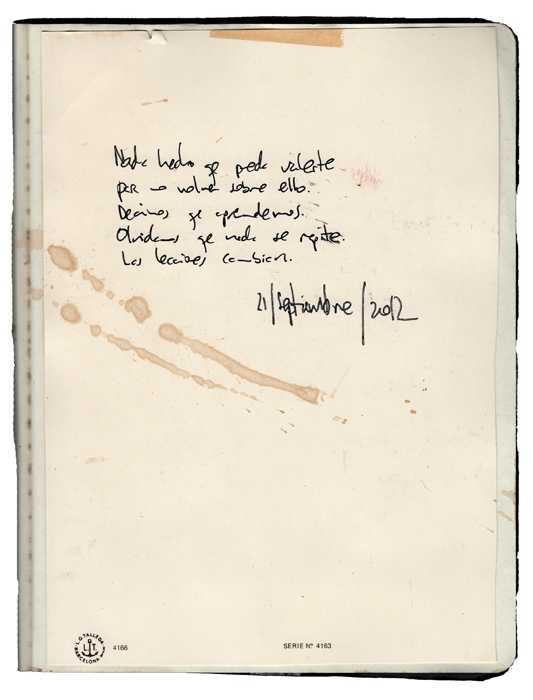 Nada hecho qe pueda valerte
para no volver sobre ello.
Decimos qe aprendemos.
Olvidamos qe nada se repite.
Las lecciones cambian.
21/septiembre/2012
L.G. TALLEDA
BARCELONA
L T
4166
SERIE Nº 4163